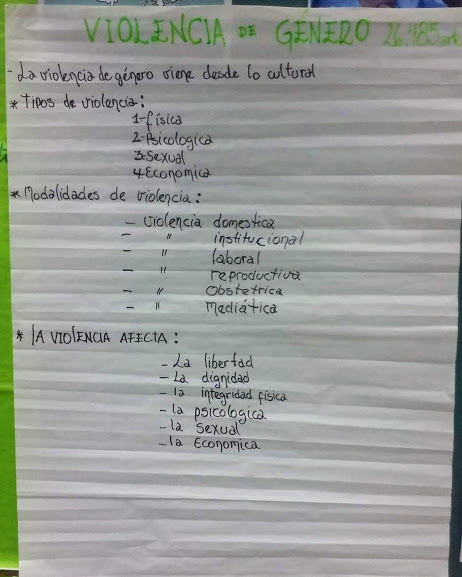 VIOLENCIA DE GÉNERO 26.485
- La violencia de género viene desde lo cultural
* Tipos de violencia:
1-física
2-Psicologica
3-Sexual
4-Economica
* Modalidades de violencia:
- violencia domestica
- " institucional
- " laboral
- " reproductiva
- " Obstetrica
- " Mediática
* LA VIOLENCIA AFECTA:
- La libertad
- La dignidad
- la integridad física
- la psicologica
- la sexual
- la Economica